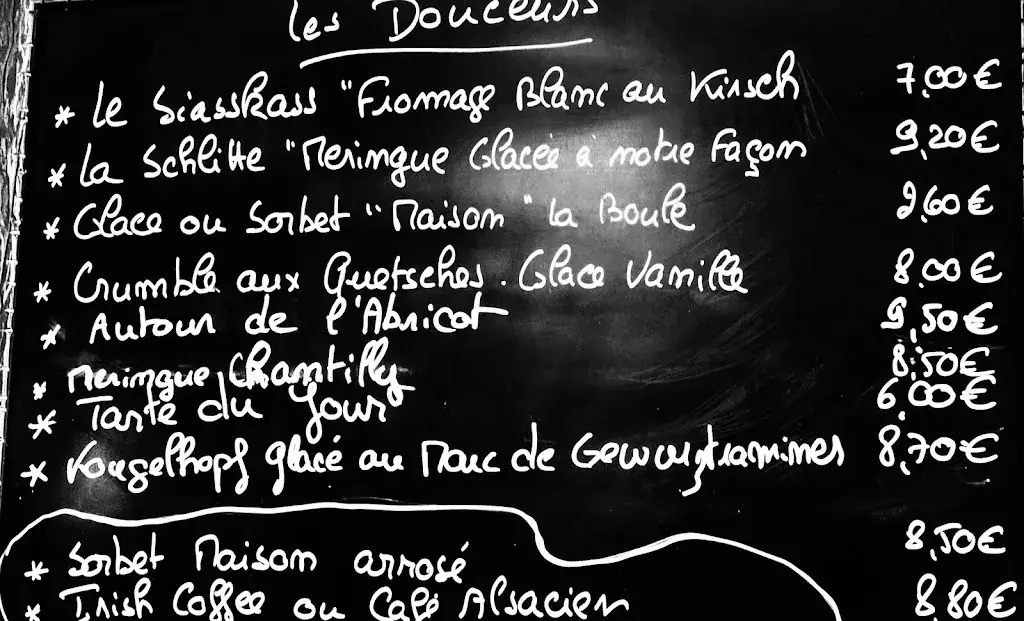 Les Douceurs
* Le Siasskass "Fromage Blanc au Kirsch 7,00€
* La Schlitte "Meringue Glacée à notre Façon 9,20€
* Glace ou Sorbet "Maison" la Boule 2,60€
* Crumble aux Quetsches. Glace Vanille 8,00€
* Autour de l'Abricot 9,50€
* Meringue Chantilly 8,50€
* Tarte du Jour 6,00€
* Kougelhopf glacé au Marc de Gewurztraminer 8,70€
* Sorbet Maison arrosé 8,50€
* Irish Coffee ou Café Alsacien 8,80€